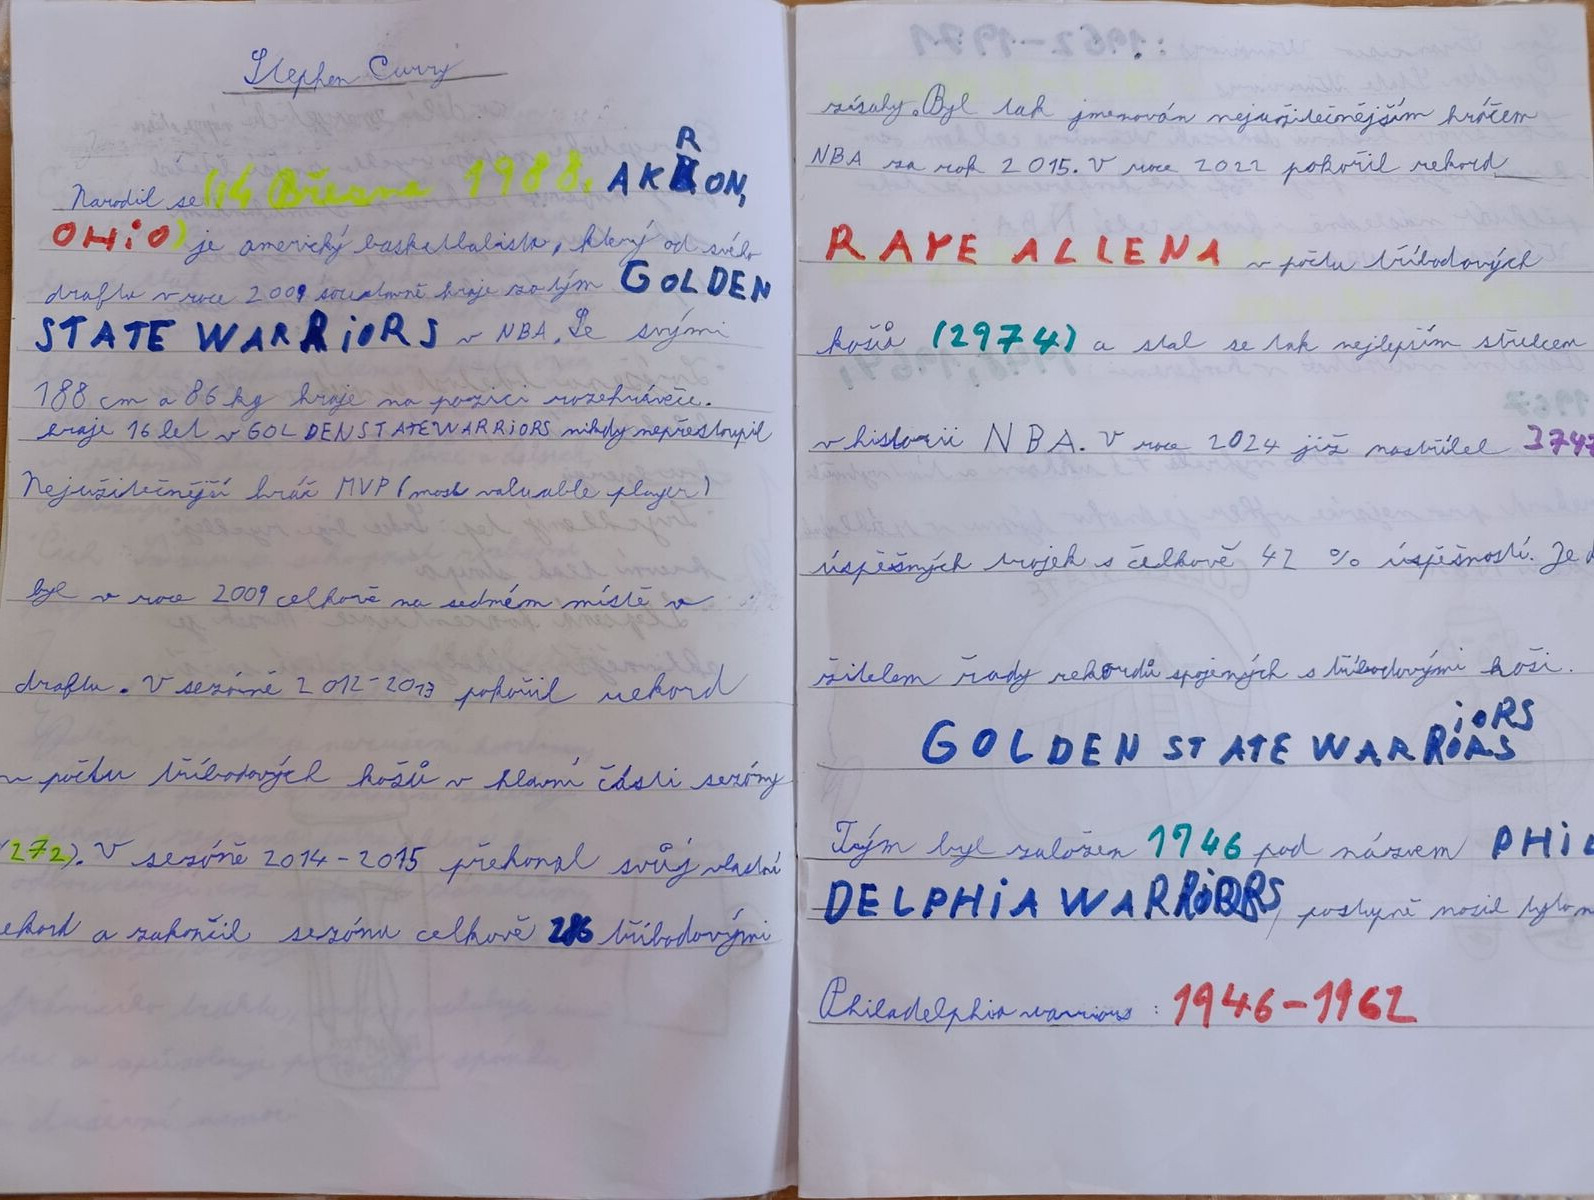 Stephen Curry
Narodil se (14 Března 1988, AKRON,
OHiO) je americký basketbalista, který od svého
draftu v roce 2009 soustavně hraje za tým GOLDEN
STATE WARRiORS v NBA. Se svými
188 cm a 86 kg hraje na pozici rozehrávače.
hraje 16 let v GOLDENSTATEWARRiORS nikdy nepřestoupil
Nejužitečnější hráč MVP (most valuable player)
byl v roce 2009 celkově na sedmém místě v
draftu. V sezóně 2012-2013 pokořil rekord
v počtu tříbodových košů v hlavní části sezóny
(272). V sezóně 2014-2015 překonal svůj vlastní
rekord a zakončil sezónu celkově 286 tříbodovými
zásahy. Byl tak jmenován nejužitečnějším hráčem
NBA za rok 2015. V roce 2022 pokořil rekord
RAYE ALLENA v počtu tříbodových
košů (2974) a stal se tak nejlepším střelcem
v historii NBA. V roce 2024 již nastřílel 3747
úspěšných trojek s čelkově 42 % úspěšností. Je
žitelem řady rekordů spojených s tříbodovými koši.
GOLDEN STATE WARRiORS
Tým byl založen 1946 pod názvem PHiL
DELPHiA WARRiORS, postupně nosil tyto
Philadelphia warriors: 1946-1962